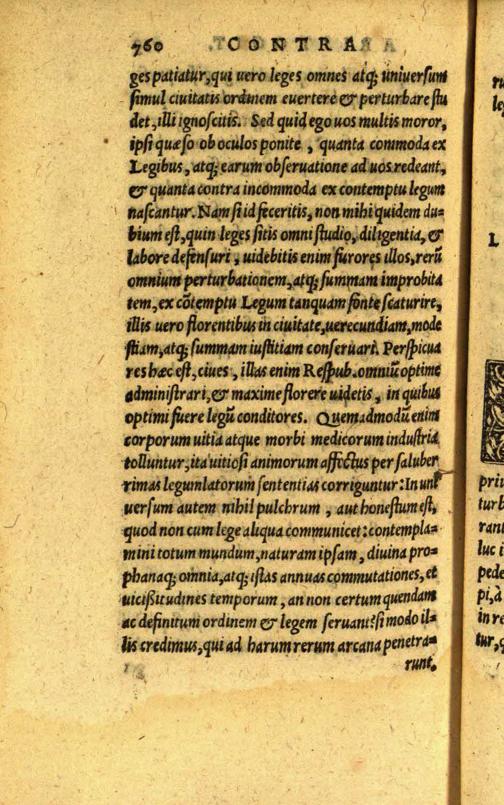 760 CONTRA
ges patiatur, qui uero leges omnes atq; uniuersum
simul ciuitatis ordinem euertere & perturbare stu
det, illi ignoscitis. Sed quid ego uos multis moror,
ipsi quæso ob oculos ponite, quanta commoda ex
Legibus, atq; earum obseruatione ad uos redeant,
& quanta contra incommoda ex contemptu legum
nascantur. Nam si id feceritis, non mihi quidem du-
bium est, quin leges sitis omni studio, diligentia, &
labore defensuri, uidebitis enim furores illos, rerū
omnium perturbationem, atq; summam improbita
tem, ex cōtemptu Legum tanquam fonte scaturire,
illis uero florentibus in ciuitate, uerecundiam, mode
stiam, atq; summam iustitiam conseruari. Perspicua
res hæc est, ciues, illas enim Respub. omniū optime
administrari, & maxime florere uidetis, in quibus
optimi fuere legū conditores. Quemadmodū enim
corporum uitia atque morbi medicorum industria
tolluntur, ita uitiosi animorum affectus per saluber
rimas legumlatorum sententias corriguntur: In uni
uersum autem nihil pulchrum, aut honestum est,
quod non cum lege aliqua communicet: contempla-
mini totum mundum, naturam ipsam, diuina pro-
phanaq; omnia, atq; istas annuas commutationes, et
uicißitudines temporum, an non certum quendam
ac definitum ordinem & legem seruant? si modo il-
lis credimus, qui ad harum rerum arcana penetra-
runt,
L
priu
turb
rant
luc i
pede
pi, à
in re